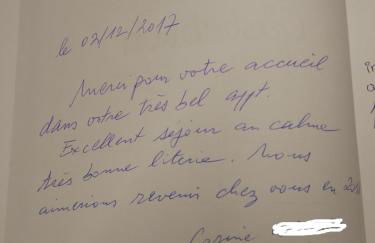 le 02/12/2017
Merci pour votre accueil
dans votre très bel appt.
Excellent séjour au calme
très bonne literie. Nous
aimerions revenir chez vous en